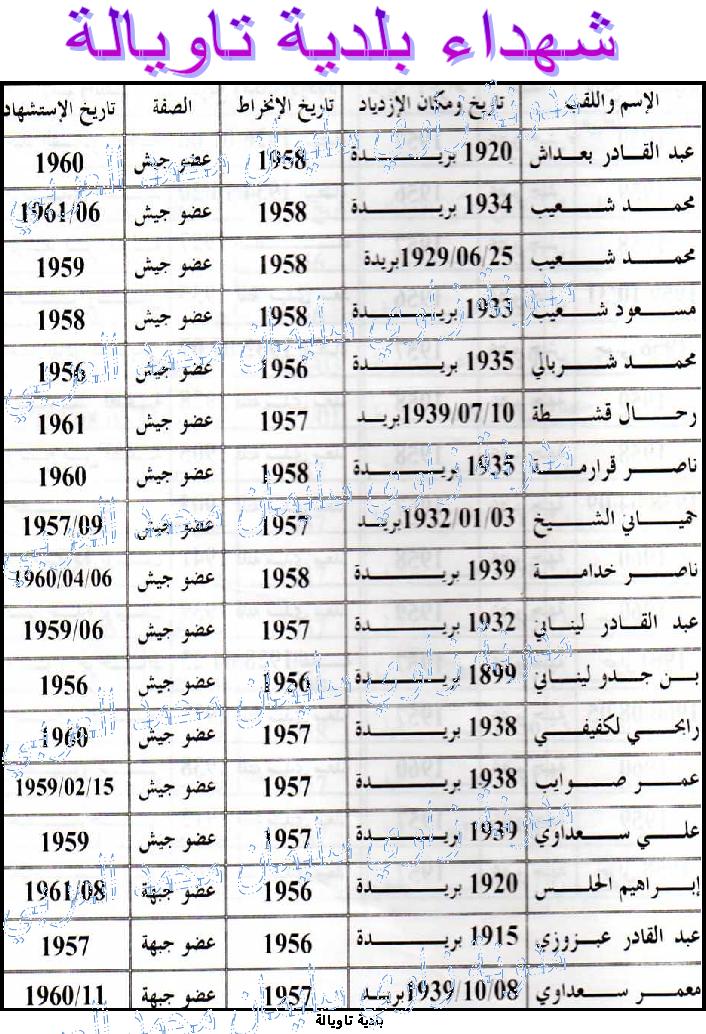 شهداء بلدية تاويالة
الإسم واللقب تاريخ ومكان الإزدياد تاريخ الإنخراط الصفة تاريخ الإستشهاد
عبد القادر بعداش 1920 بريدة 1958 عضو جيش 1960
محمد شعيب 1934 بريدة 1958 عضو جيش 1961/06
محمد شعيب 1929/06/25 بريدة 1958 عضو جيش 1959
مسعود شعيب 1933 بريدة 1958 عضو جيش 1958
محمد شربالي 1935 بريدة 1956 عضو جيش 1956
رحال قشطة 1939/07/10 بريد 1957 عضو جيش 1961
ناصر قرارمة 1935 بريدة 1958 عضو جيش 1960
حمياني الشيخ 1932/01/03 بريد 1957 عضو جيش 1957/09
ناصر خدامة 1939 بريدة 1958 عضو جيش 1960/04/06
عبد القادر ليناني 1932 بريدة 1957 عضو جيش 1959/06
بن جدو ليناني 1899 بريدة 1956 عضو جيش 1956
رابحي لكفيفي 1938 بريدة 1957 عضو جيش 1960
عمر صوايب 1938 بريدة 1957 عضو جيش 1959/02/15
علي سعداوي 1939 بريدة 1957 عضو جيش 1959
إبراهيم الحلس 1920 بريدة 1956 عضو جبهة 1961/08
عبد القادر عبزوزي 1915 بريدة 1956 عضو جبهة 1957
معمر سعداوي 1939/10/08 بريد 1957 عضو جبهة 1960/11
بلدية تاويالة